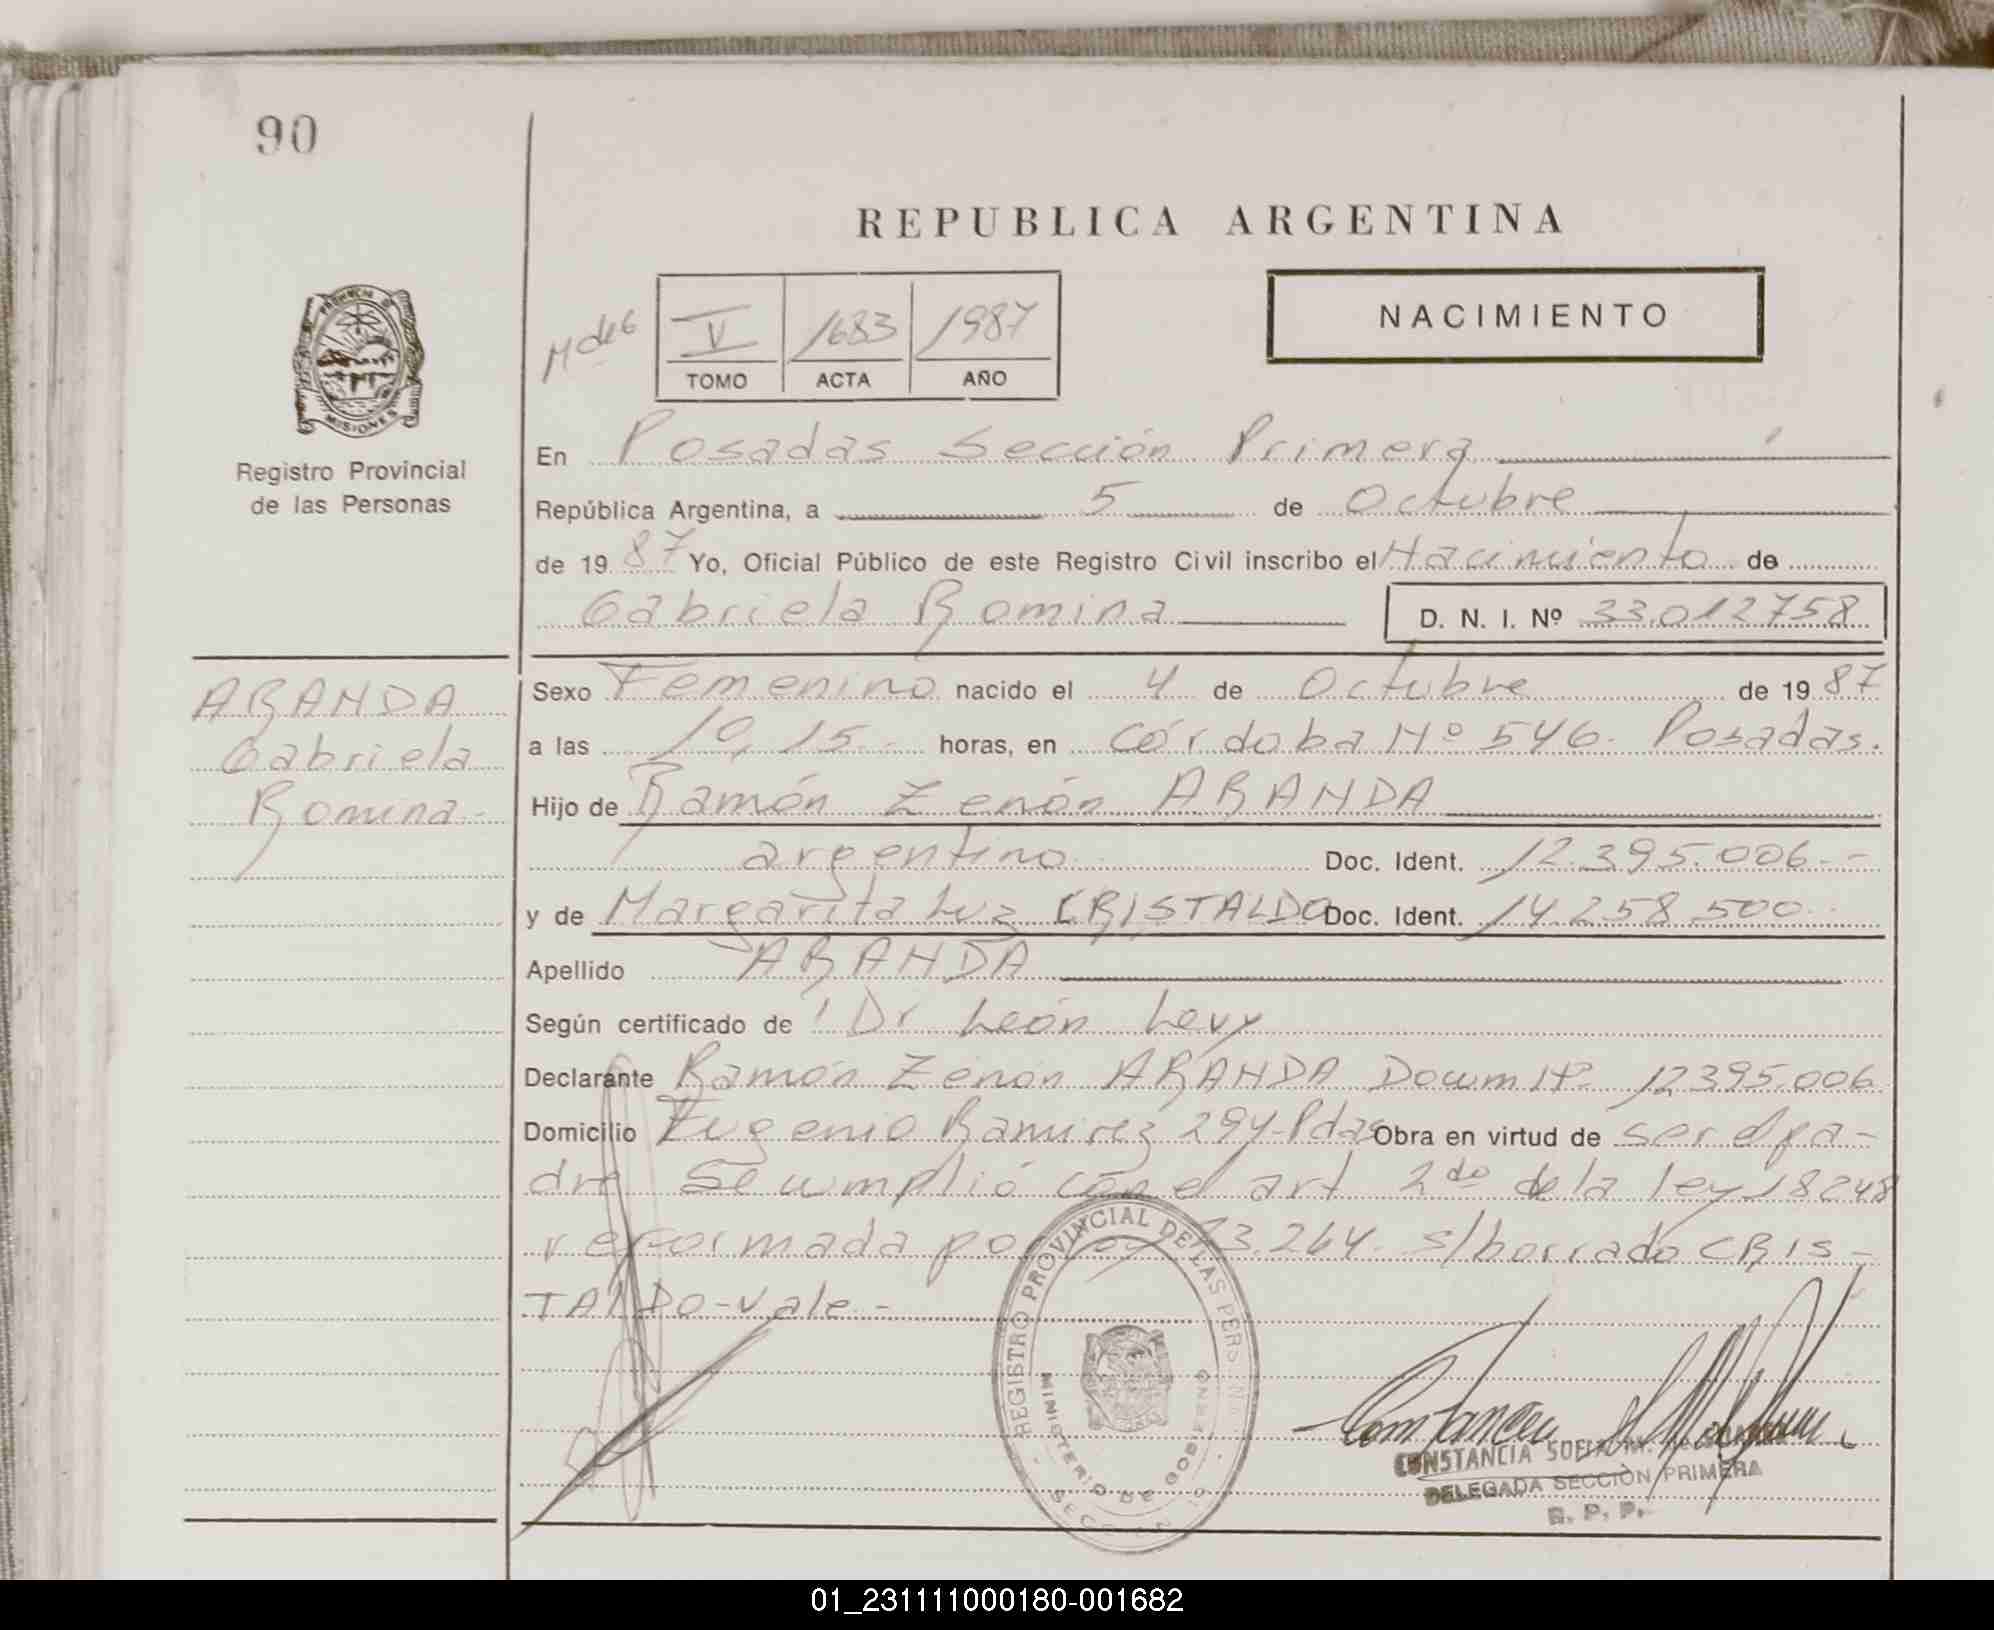 90
REPUBLICA ARGENTINA
NACIMIENTO
M de 6
V 1683 1987
TOMO ACTA AÑO
PROVINCIA DE
MISIONES
Registro Provincial
de las Personas
En Posadas Sección Primera
República Argentina, a 5 de Octubre
de 1987 Yo, Oficial Público de este Registro Civil inscribo el Nacimiento de
Gabriela Romina D. N. I. Nº 33.012758
ARANDA
Gabriela
Romina-
Sexo Femenino nacido el 4 de Octubre de 1987
a las 10,15 horas, en Córdoba Nº 546. Posadas.
Hijo de Ramón Zenón ARANDA
argentino Doc. Ident. 12.395.006.-
y de Margarita Luz CRISTALDO Doc. Ident. 14.258.500
Apellido ARANDA
Según certificado de Dr León Levy
Declarante Ramón Zenón ARANDA Docum Nº 12395.006
Domicilio Eugenio Ramirez 294-Pdas Obra en virtud de ser el pa-
dre Se cumplió con el art 2do de la ley 18248
reformada por ley 23.264. s/borrado CRIS-
TALDO-vale-
REGISTRO PROVINCIAL DE LAS PERSONAS
MINISTERIO DE GOBIERNO
CONSTANCIA SOFIA M.
DELEGADA SECCIÓN PRIMERA
R. P. P.
01_231111000180-001682